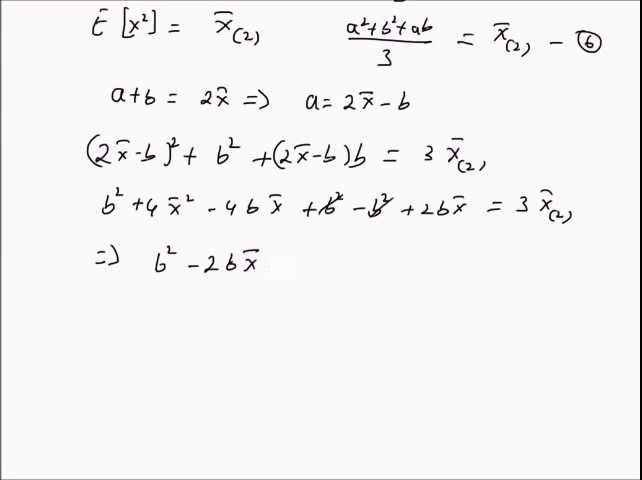 E [x²] = x̄₍₂₎   (a²+b²+ab)/3 = x̄₍₂₎ – ⑥
a+b = 2x̄ => a = 2x̄ – b
(2x̄-b)² + b² + (2x̄-b)b = 3 x̄₍₂₎
b² + 4x̄² - 4bx̄ + b² - b² + 2bx̄ = 3 x̄₍₂₎
=> b² - 2bx̄